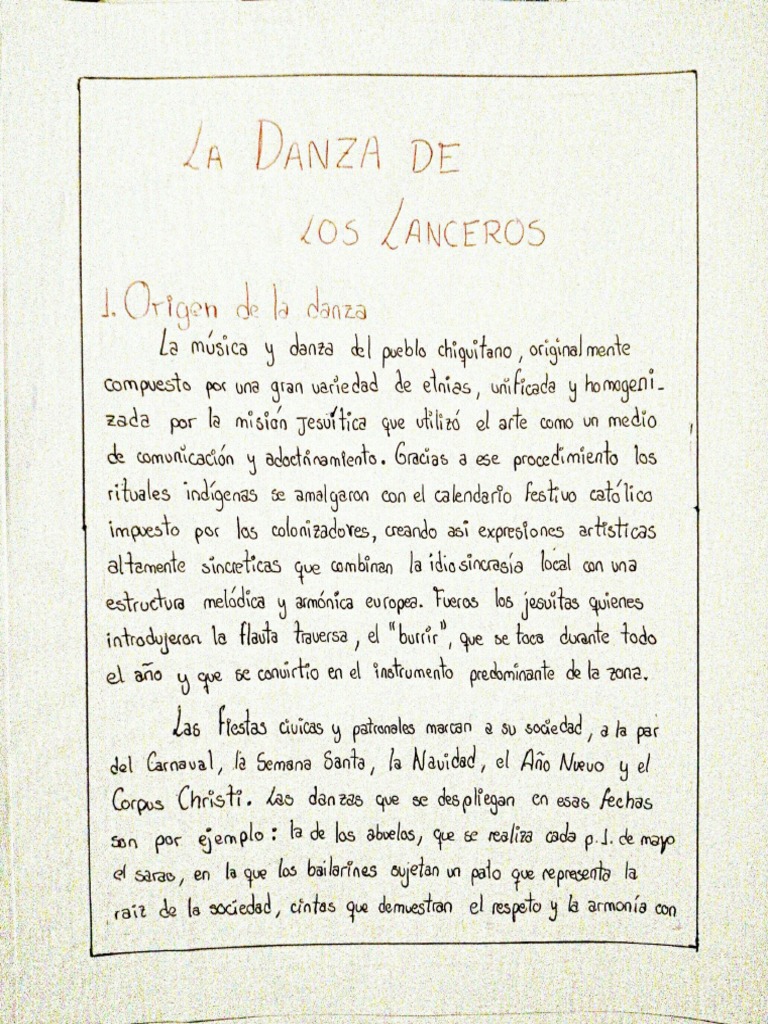 LA DANZA DE
LOS LANCEROS
1. Origen de la danza
La música y danza del pueblo chiquitano, originalmente
compuesto por una gran variedad de etnias, unificada y homogeni-
zada por la misión Jesuítica que utilizó el arte como un medio
de comunicación y adoctrinamiento. Gracias a ese procedimiento los
rituales indígenas se amalgaron con el calendario festivo católico
impuesto por los colonizadores, creando asi expresiones artisticas
altamente sincreticas que combinan la idiosincrasía local con una
estructura melódica y armónica europea. Fueros los jesuitas quienes
introdujeron la flauta traversa, el "burrir", que se toca durante todo
el año y que se convirtio en el instrumento predominante de la zona.
Las fiestas civicas y patronales marcan a su sociedad, a la par
del Carnaval, la Semana Santa, la Navidad, el Año Nuevo y el
Corpus Christi. Las danzas que se despliegan en esas fechas
son por ejemplo: la de los abuelos, que se realiza cada p.1. de mayo
el sarao, en la que los bailarines sujetan un palo que representa la
raiz de la sociedad, cintas que demuestran el respeto y la armonía con